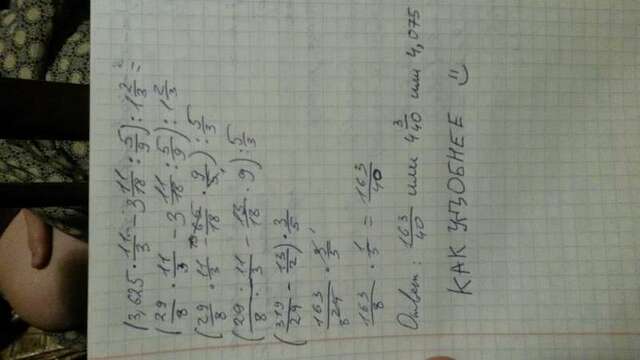 (3,625 · 11/3 − 3 11/18 : 5/9) : 1 2/3 =
(29/8 · 11/3 − 3 11/18 : 5/9) : 1 2/3
(29/8 · 11/3 − 13 65/18 · 9/5) : 5/3
(29 · 11/8 · 3 − 13/18 · 9) : 5/3
(319/24 − 13/2) · 3/5
163/8 24 · 3/5 1
163/8 · 1/5 = 163/40
Ответ: 163/40 или 4 3/40 или 4,075
КАК УДОБНЕЕ